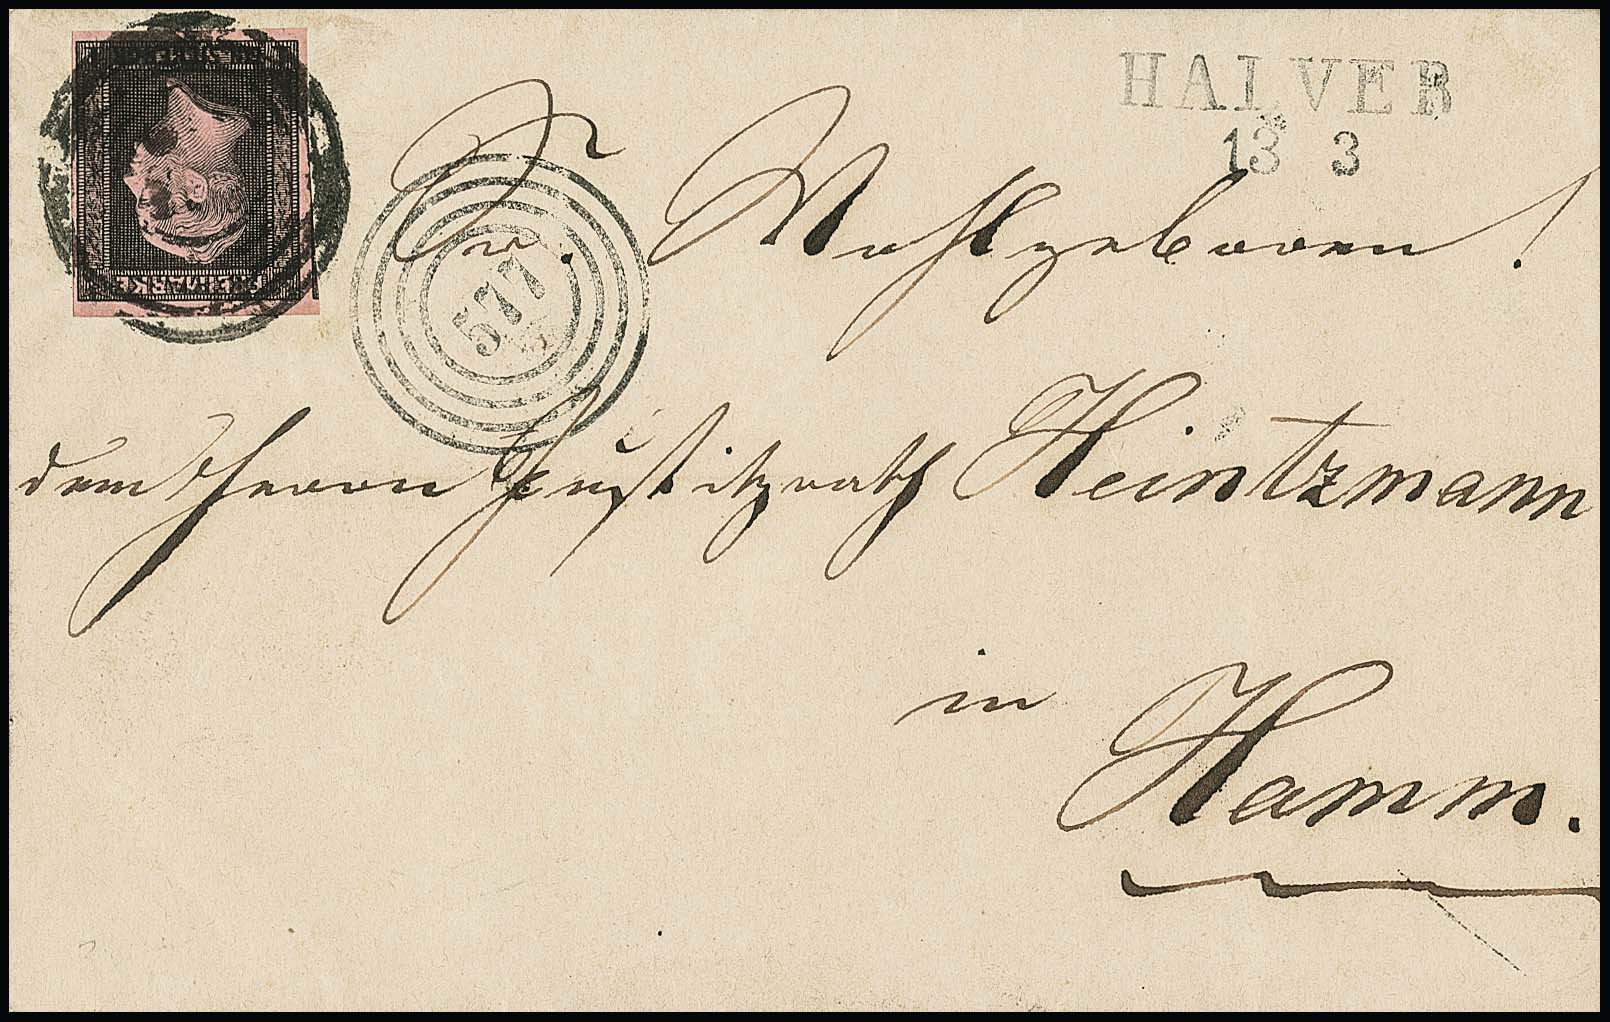 HALVER
13 3
FREIMARKE
577
Sr. Wohlgeboren!
dem Herrn Justizrath Heintzmann
in
Hamm.